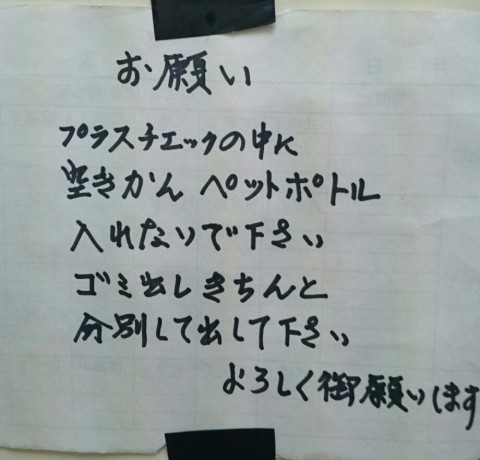 お願い
プラスチェックの中に
空きかん ペットポトル
入れないで下さい
ゴミ出しきちんと
分別して出して下さい
よろしく御願いします